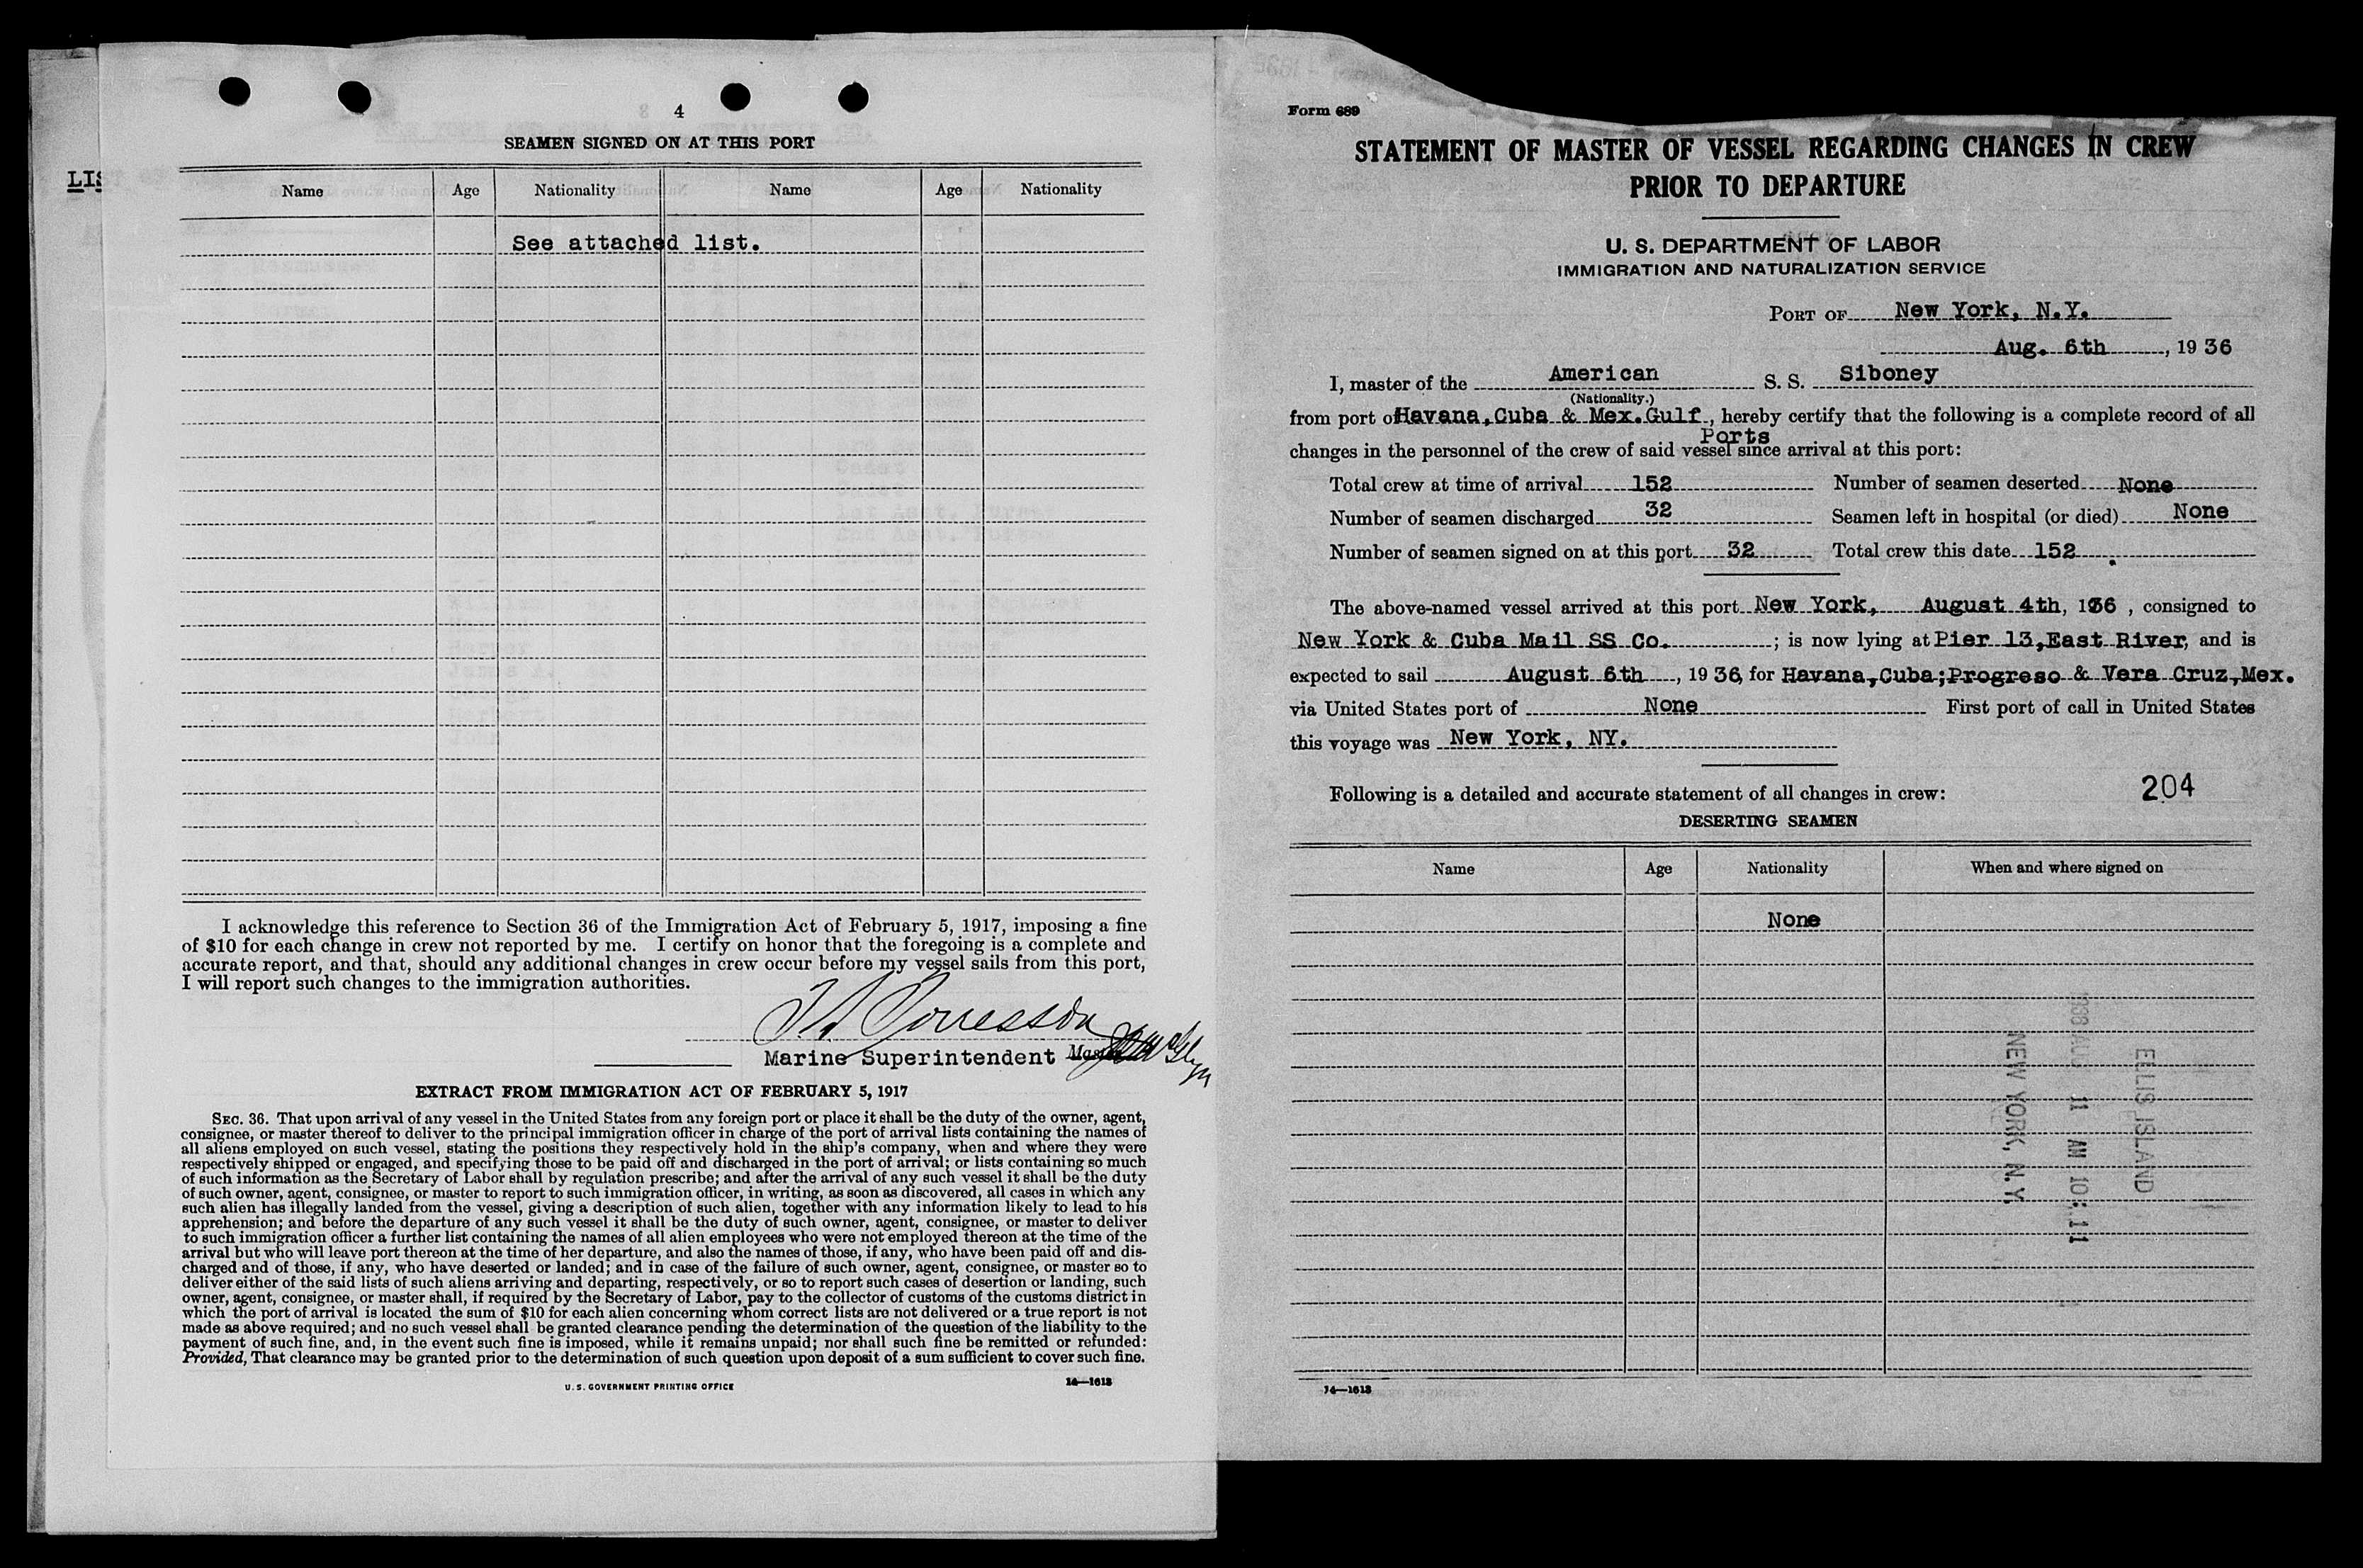 4
SEAMEN SIGNED ON AT THIS PORT
LIS
Name Age Nationality Name Age Nationality
See attached list.
I acknowledge this reference to Section 36 of the Immigration Act of February 5, 1917, imposing a fine
of $10 for each change in crew not reported by me. I certify on honor that the foregoing is a complete and
accurate report, and that, should any additional changes in crew occur before my vessel sails from this port,
I will report such changes to the immigration authorities.
Marine Superintendent
EXTRACT FROM IMMIGRATION ACT OF FEBRUARY 5, 1917
SEC. 36. That upon arrival of any vessel in the United States from any foreign port or place it shall be the duty of the owner, agent,
consignee, or master thereof to deliver to the principal immigration officer in charge of the port of arrival lists containing the names of
all aliens employed on such vessel, stating the positions they respectively hold in the ship's company, when and where they were
respectively shipped or engaged, and specifying those to be paid off and discharged in the port of arrival; or lists containing so much
of such information as the Secretary of Labor shall by regulation prescribe; and after the arrival of any such vessel it shall be the duty
of such owner, agent, consignee, or master to report to such immigration officer, in writing, as soon as discovered, all cases in which any
such alien has illegally landed from the vessel, giving a description of such alien, together with any information likely to lead to his
apprehension; and before the departure of any such vessel it shall be the duty of such owner, agent, consignee, or master to deliver
to such immigration officer a further list containing the names of all alien employees who were not employed thereon at the time of the
arrival but who will leave port thereon at the time of her departure, and also the names of those, if any, who have been paid off and dis-
charged and of those, if any, who have deserted or landed; and in case of the failure of such owner, agent, consignee, or master so to
deliver either of the said lists of such aliens arriving and departing, respectively, or so to report such cases of desertion or landing, such
owner, agent, consignee, or master shall, if required by the Secretary of Labor, pay to the collector of customs of the customs district in
which the port of arrival is located the sum of $10 for each alien concerning whom correct lists are not delivered or a true report is not
made as above required; and no such vessel shall be granted clearance pending the determination of the question of the liability to the
payment of such fine, and, in the event such fine is imposed, while it remains unpaid; nor shall such fine be remitted or refunded:
Provided, That clearance may be granted prior to the determination of such question upon deposit of a sum sufficient to cover such fine.
U. S. GOVERNMENT PRINTING OFFICE 14—1613
Form 689
STATEMENT OF MASTER OF VESSEL REGARDING CHANGES IN CREW
PRIOR TO DEPARTURE
U. S. DEPARTMENT OF LABOR
IMMIGRATION AND NATURALIZATION SERVICE
PORT OF New York, N.Y.
Aug. 6th, 1936
I, master of the American S. S. Siboney
(Nationality.)
from port of Havana,Cuba & Mex.Gulf, hereby certify that the following is a complete record of all
Ports
changes in the personnel of the crew of said vessel since arrival at this port:
Total crew at time of arrival 152 Number of seamen deserted None
Number of seamen discharged 32 Seamen left in hospital (or died) None
Number of seamen signed on at this port 32 Total crew this date 152
The above-named vessel arrived at this port New York, August 4th, 1936, consigned to
New York & Cuba Mail SS Co.; is now lying at Pier 13,East River, and is
expected to sail August 6th, 1936, for Havana,Cuba;Progreso & Vera Cruz,Mex.
via United States port of None First port of call in United States
this voyage was New York, NY.
Following is a detailed and accurate statement of all changes in crew: 204
DESERTING SEAMEN
Name Age Nationality When and where signed on
None
ELLIS ISLAND
1936 AUG 11 AM 10:11
NEW YORK, N.Y.
14—1613